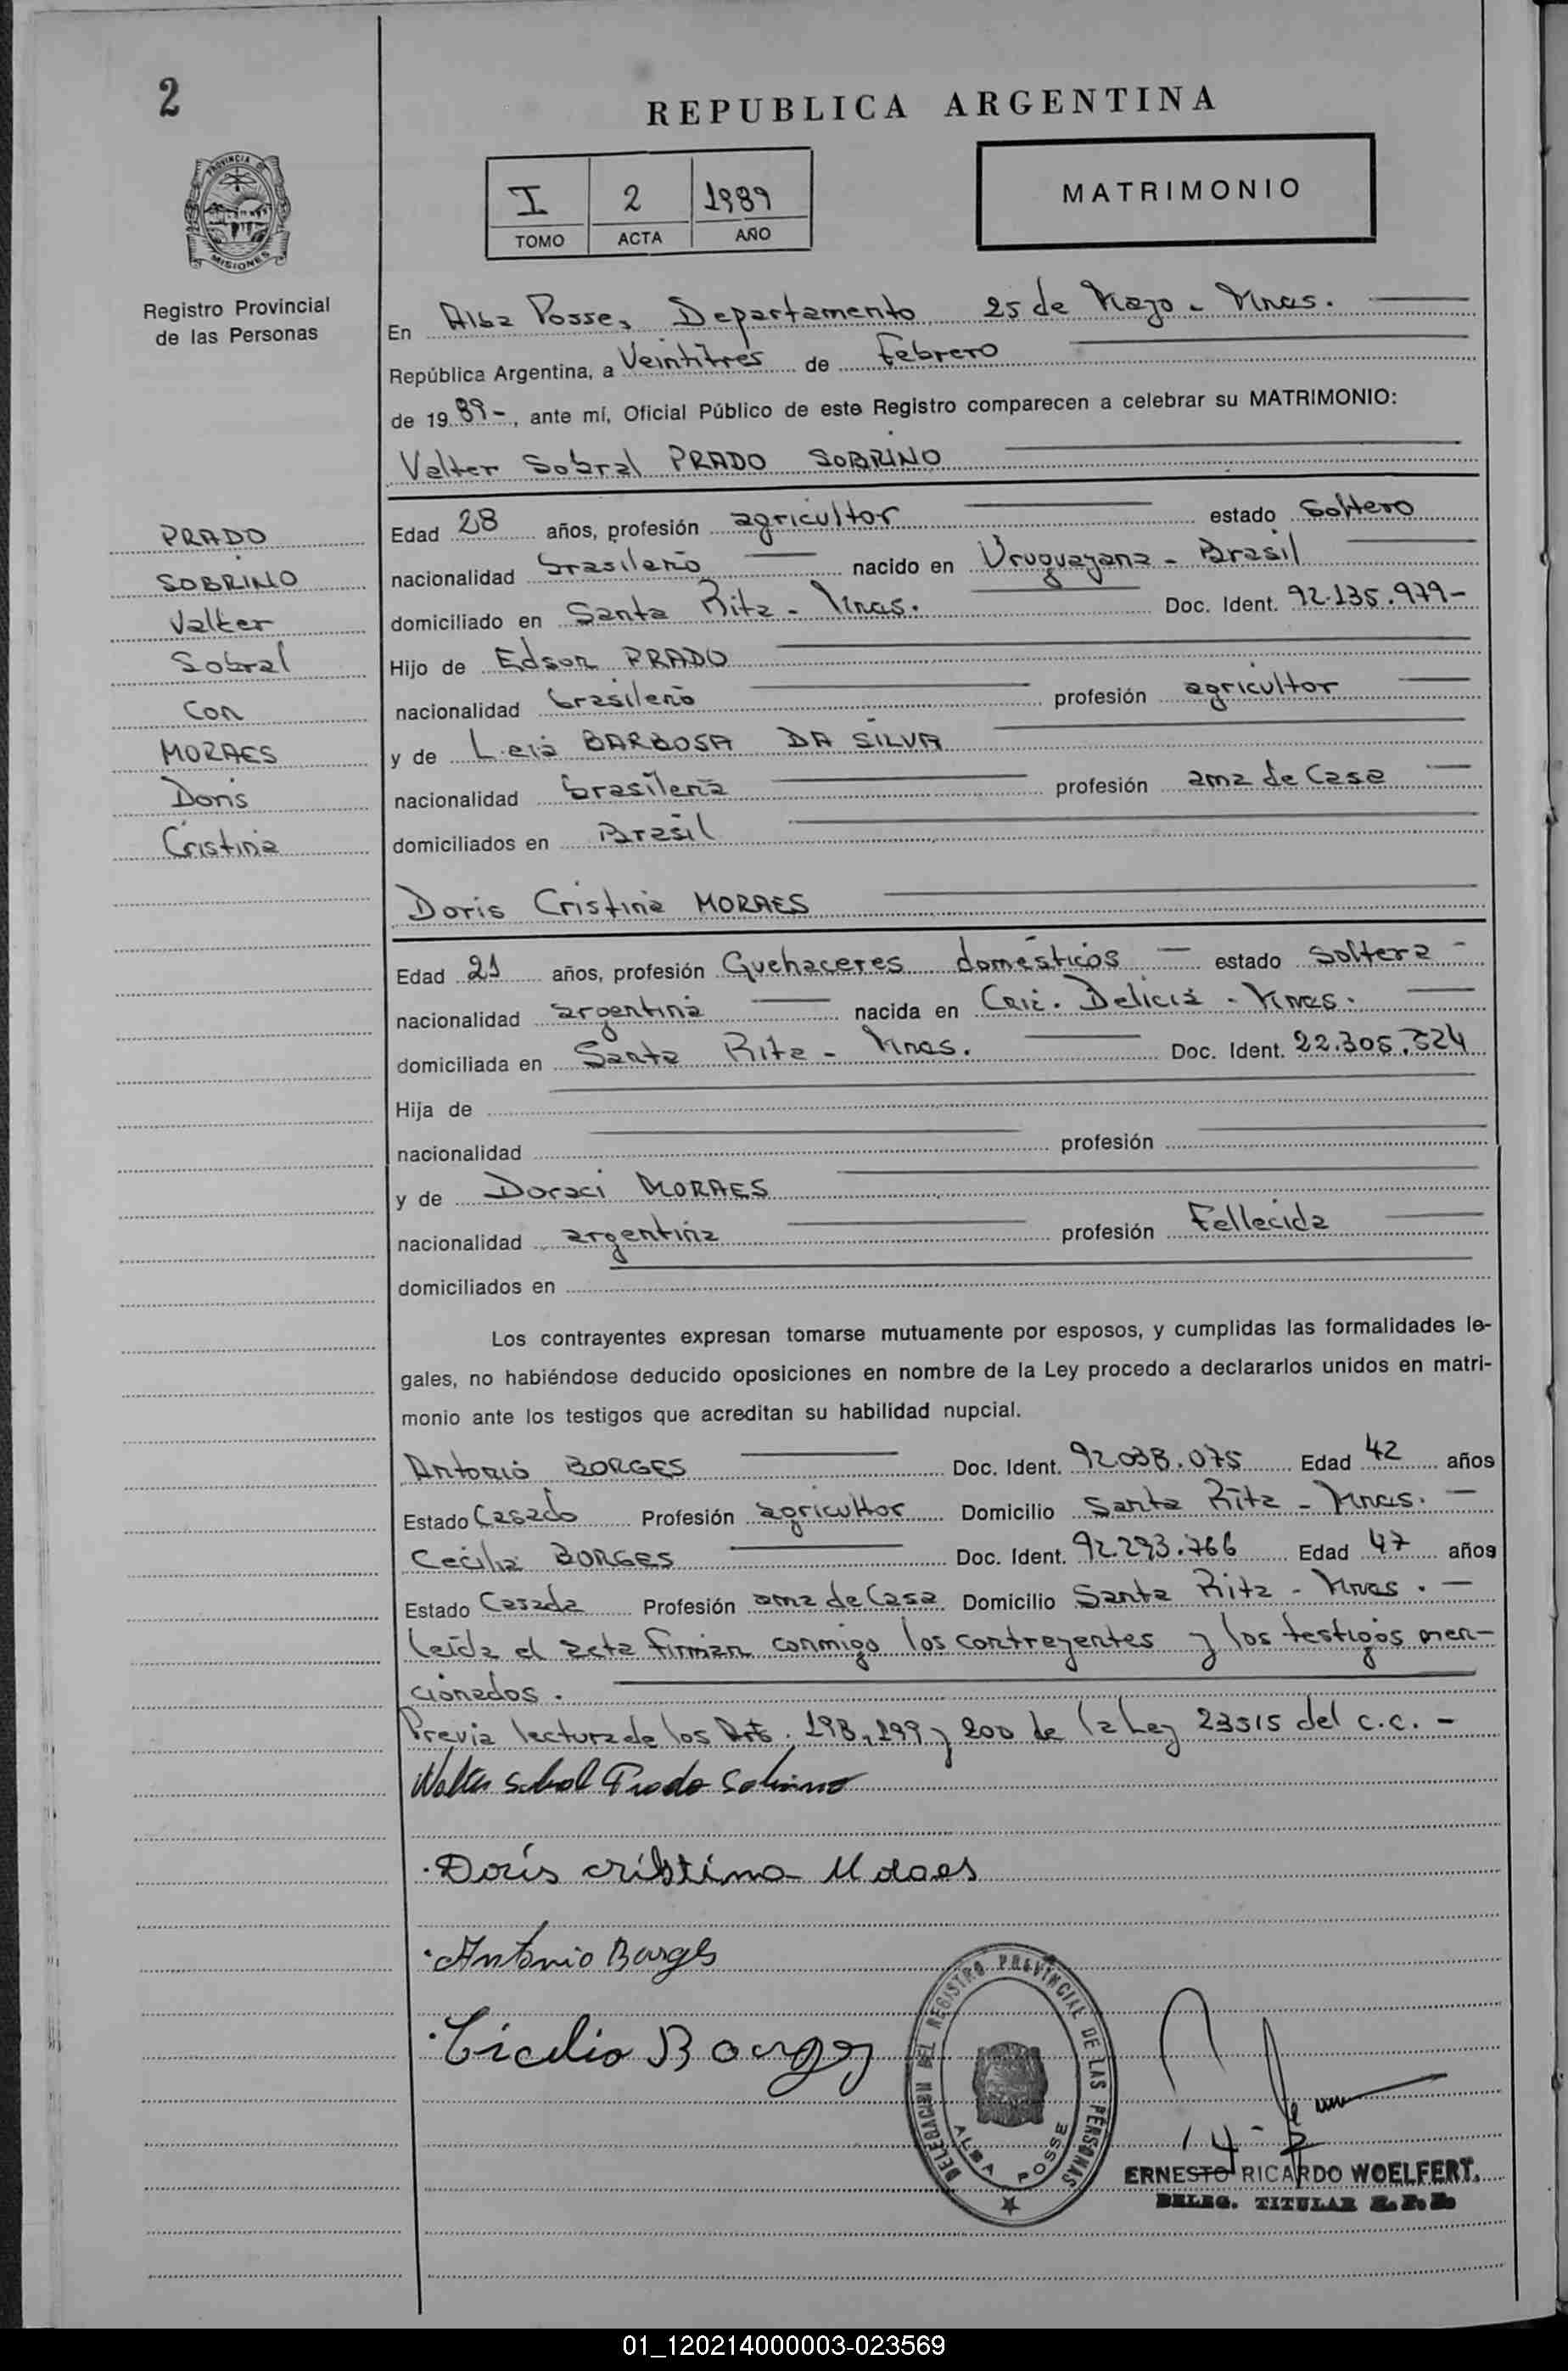 2
REPUBLICA ARGENTINA
PROVINCIA DE MISIONES
I 2 1989
TOMO ACTA AÑO
MATRIMONIO
Registro Provincial
de las Personas
En Alba Posse, Departamento 25 de Mayo - Mnes.
República Argentina, a Veintitres de Febrero
de 1989-, ante mí, Oficial Público de este Registro comparecen a celebrar su MATRIMONIO:
Valter Sobral PRADO SOBRINO
PRADO
SOBRINO
Valter
Sobral
con
MORAES
Doris
Cristina
Edad 28 años, profesión agricultor estado Soltero
nacionalidad brasileño nacido en Uruguayana - Brasil
domiciliado en Santa Rita - Mnes. Doc. Ident. 92.135.979-
Hijo de Edson PRADO
nacionalidad brasileño profesión agricultor
y de Leia BARBOSA DA SILVA
nacionalidad brasileña profesión ama de Casa
domiciliados en Brasil
Doris Cristina MORAES
Edad 21 años, profesión Quehaceres domésticos - estado Soltera -
nacionalidad argentina nacida en Delicia - Mnes.
domiciliada en Santa Rita - Mnes. Doc. Ident.
Hija de
nacionalidad profesión
y de Doraci MORAES
nacionalidad argentina profesión Fallecida
domiciliados en
Los contrayentes expresan tomarse mutuamente por esposos, y cumplidas las formalidades le-
gales, no habiéndose deducido oposiciones en nombre de la Ley procedo a declararlos unidos en matri-
monio ante los testigos que acreditan su habilidad nupcial.
Antonio BORGES Doc. Ident. 92.038.075 Edad 42 años
Estado Casado Profesión agricultor Domicilio Santa Rita - Mnes. -
Cecilia BORGES Doc. Ident. 92.293.766 Edad 47 años
Estado Casada Profesión ama de Casa Domicilio Santa Rita - Mnes. -
Leída el acta firman conmigo los contrayentes y los testigos men-
cionados.
Previa lectura de los Arts. 198, 199 y 200 de la Ley 23515 del c.c. -
Walter Sobral Prado Sobrino
Doris cristina Moraes
Antonio Borges
Cicilio Borges
DELEGACION DEL REGISTRO PROVINCIAL DE LAS PERSONAS
ALBA POSSE
ERNESTO RICARDO WOELFERT.
DELEG. TITULAR R. P. P.
01_120214000003-023569